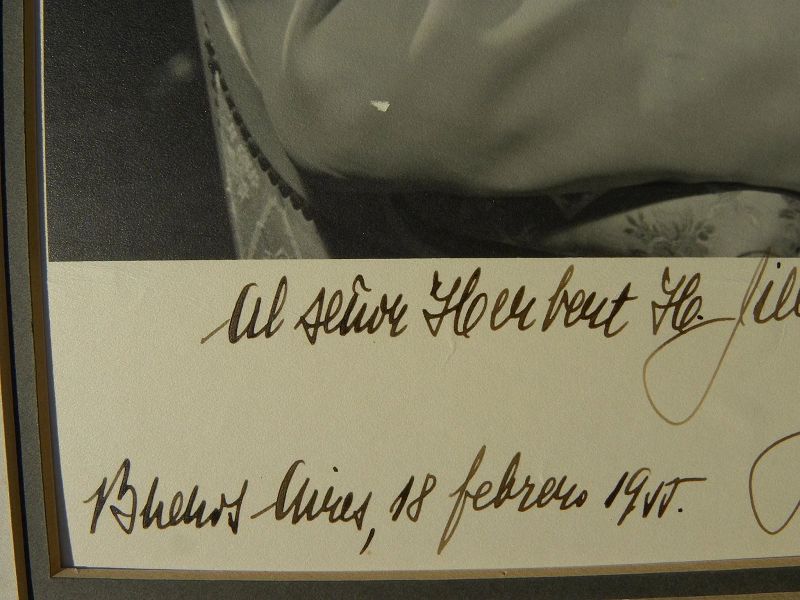 Al señor Herbert H.
Buenos Aires, 18 febrero 1955.